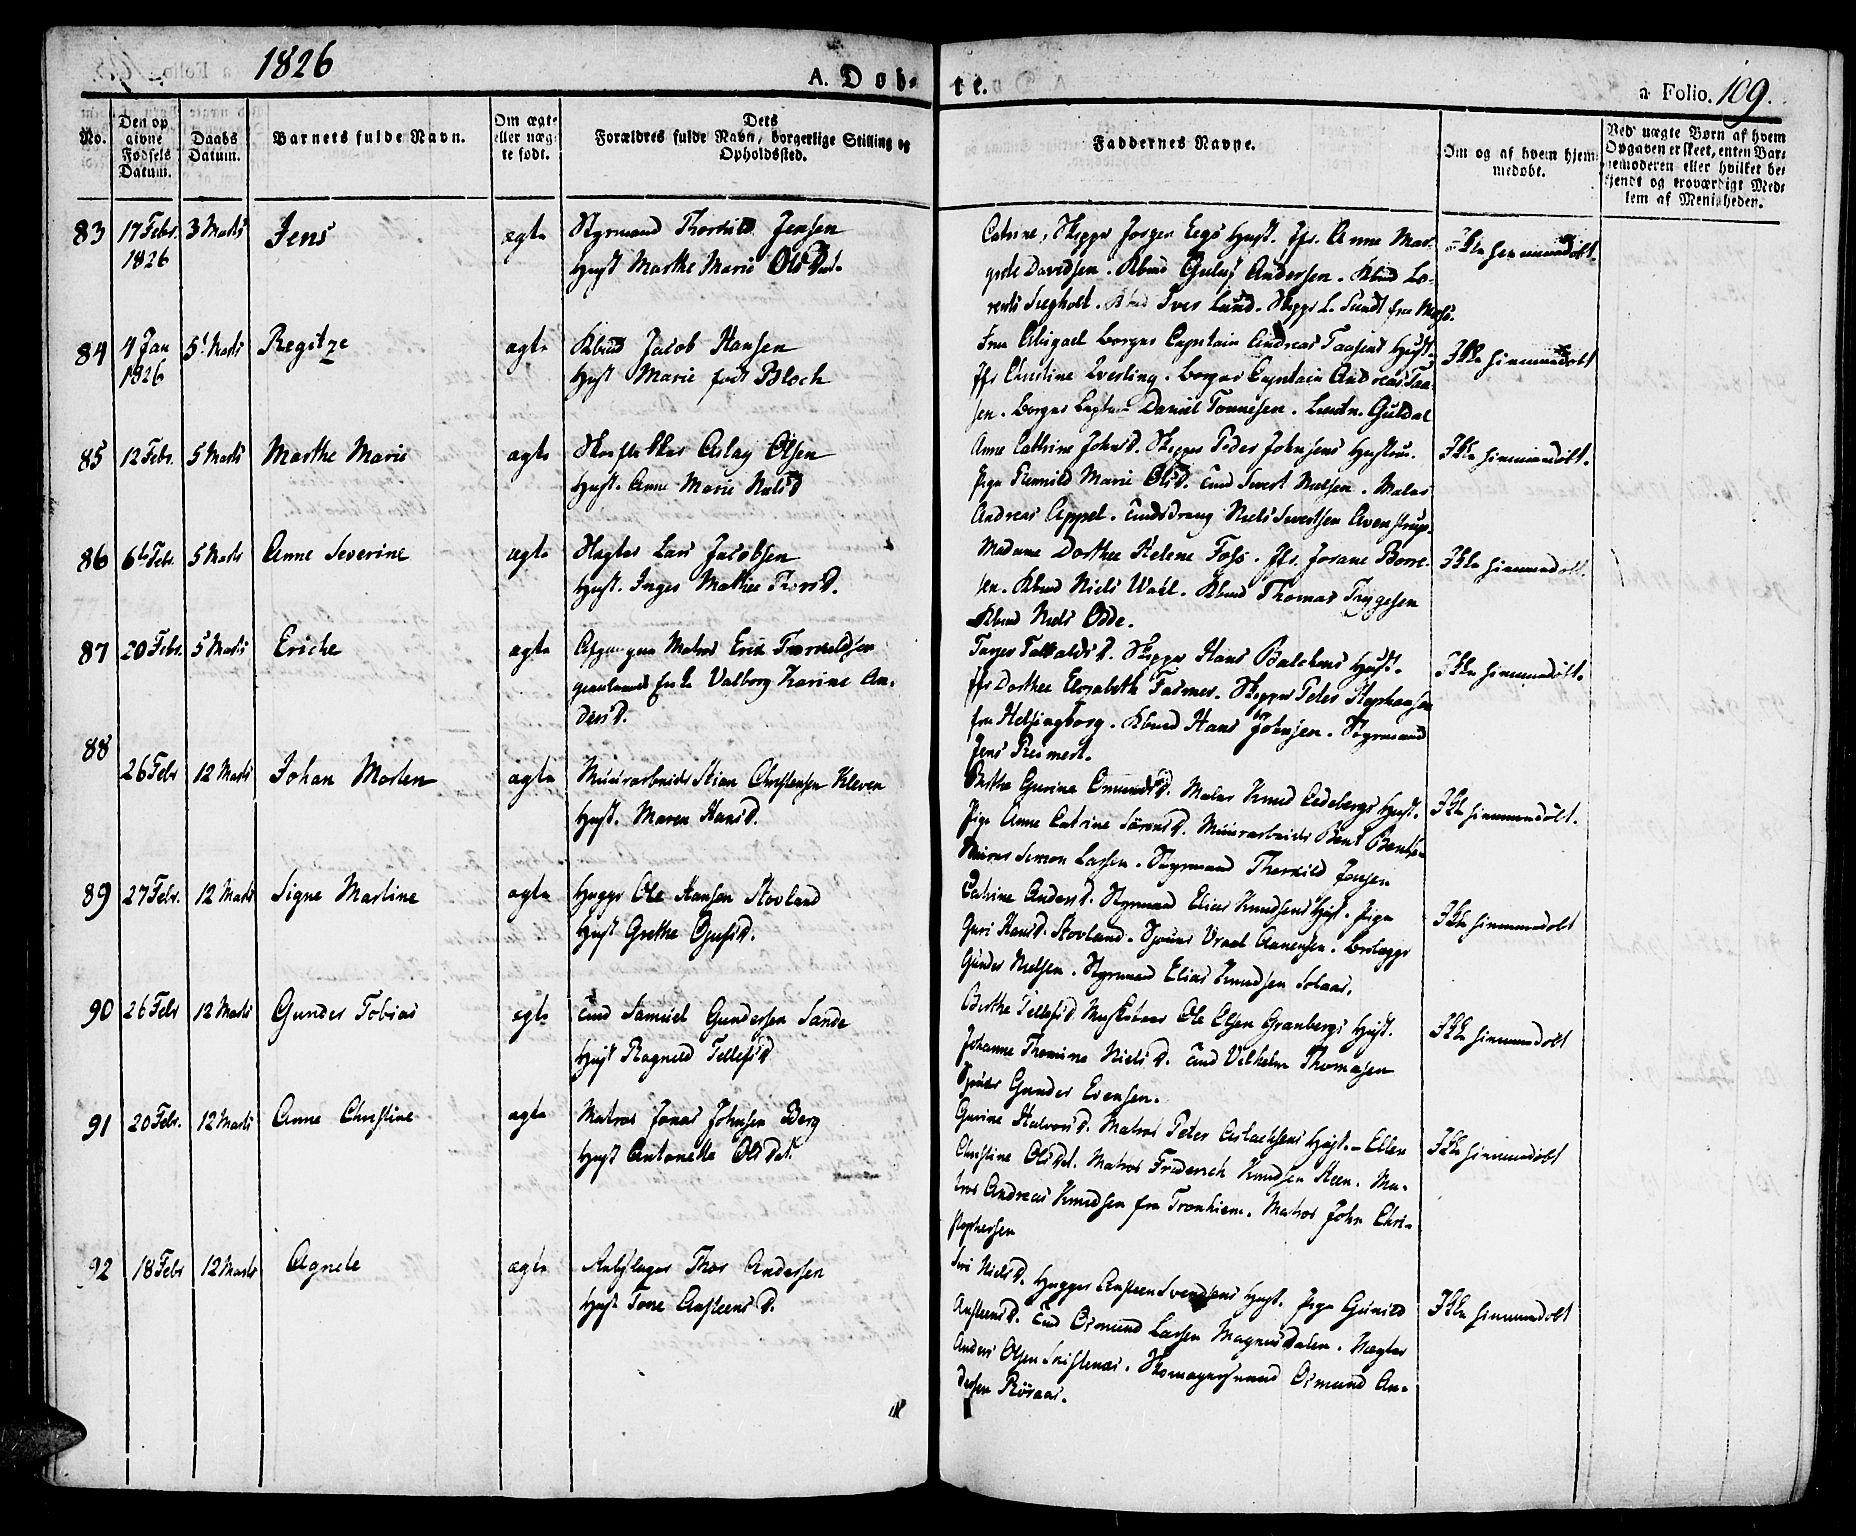 1826
A. Døb-
te.
a Folio. 109.
No.
Den op
givne
Fødsels
Datum.
Daabs
Datum.
Barnets fulde Navn.
Om ægte
eller uæg-
te født.
Dets
Forældres fulde Navn, borgerlige Stilling og
Opholdssted.
Faddernes Navne.
Om og af hvem hjem-
medøbt.
Ved uægte Børn af hvem
Opgaven er skeet, enten Bar-
nemoderen eller hvilket be-
kjendt og troværdigt Med-
lem af Menigheden.
83 17 Febr. 1826 3 Marts Jens ægte Styrmand Thorkild Jensen
Hust Marthe Marie Olsdat.
Catrine, Skipper Jørgen Eegs Hust. Jfr. Anne Mar-
grete Davidsen. Kbmd Guluf Andersen. Kbmd Lo-
Kbmd Iver Lund. Skippr L. Lundt fra Moss.
Ikke hiemmedøbt.
84 4 Jan 1826 5 Marts Regitze ægte Kbmd Jacob Hansen
Hust Marie født Bloch
Frue Abigael Borger Captain Andreas Taasens Hust.
Jfr Christine Zverling. Borger Captain Andreas Taa-
sen. Borger Captain Daniel Tonnesen. Lieutn. Guldal
Ikke hiemmedøbt
85 12 Febr. 5 Marts Marthe Marie ægte Aslag Olsen
Hust. Anne Marie NielsD
Anne Cathrine JohnsD. Skipper Peder Johnsens Hustrue.
Pige Marie OlsD. Tind Sivert Nielsen. Maler
Andreas Appel. Niels Sivertsen Avenstrup.
Ikke hiemmedøbt.
86 6te Febr. 5 Marts Anne Severine ægte Lars Jacobsen
Hust. Inger Mathie ThorsD.
Madame Dorthea Helene Foss. Jfr. Josane Borre-
sen. Kbmd Niels Wahl. Kbmd Thomas Trygesen
Kbmd Niels Odde.
Ikke hiemmedøbt.
87 20 Febr. 5 Marts Eriche ægte Afgangen Matros Erik Thorvaldsen
Valborg Karine An-
dersD.
Skipper Hans Balchens Hust.
Jfr Dorthea Elisabeth Skipper Peter Stephansen
fra Helsingborg. Kbmd Hans Johnsen. Styrmand
Jens Reimert.
Ikke hiemmedøbt.
88 26 Febr 12 Marts Johan Morten ægte Muurarbeider Stian Christensen Kleven
Hust. Maren HansD.
Berthe Gurine OmundsD. Maler Knud Cedebergs Hust.
Pige Anne Catrine SørensD. Muurarbeider Bent Bentsen
Muurer Simon Larsen. Styrmand Therkild Jensen
Ikke hiemmedøbt.
89 27 Febr. 12 Marts Signe Martine ægte Hugger Ole Hansen Stovland
Hust Grethe
Catrine AndersD. Styrmand Elias Knudsens Hust. Pige
Guri HansD. Stovland. Vraal Aanensen.
Gunder Nielsen. Styrmand Elias Knudsen Solaas.
Ikke hiemmedøbt
90 26 Febr 12 Marts Gunder Tobias ægte Tind Samuel Gundersen Sande
Hust Ragnild TellefsD
Berthe TellefsD. Ole Olsen Granbergs Hust.
Johanne Thomine NielsD. Tind Vilhelm Thomasen
Gunder Evensen.
Ikke hiemmedøbt
91 20 Febr. 12 Marts Anne Christine ægte Matros Jonas Johnsen Berg
Hust Antonette OlsDat
Gurine HalvorsD. Matros Peter Hust. Ellen
Christine OlsDat. Matros Friderich Knudsen Steen. Ma-
tros Andreas Knudsen fra Tronhiem. Matros John Chri-
stophersen
Ikke hiemmedøbt
92 18 Febr 12 Marts Agnete ægte Thor Andersen
Hust Tone AnsteensD.
Siri NielsD. Hugger Ansteen Svendsens Hust. Pige Gunild
AnsteensD. Tind Osmund Larsen Magnusdalen.
Anders Olsen Osmund An-
dersen Røraas.
Ikke hiemmedøbt